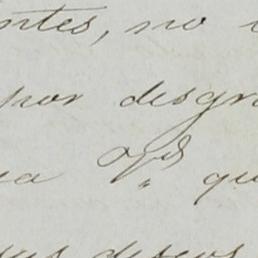 ntes, no
por desgra
a Vd qu
sus deseos